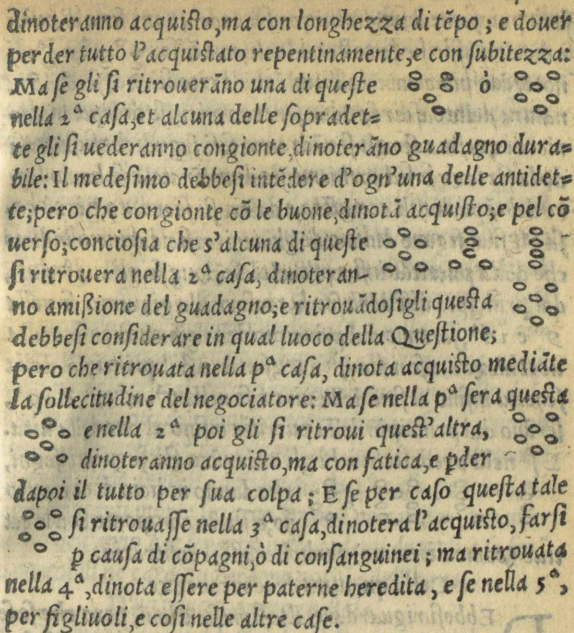 dinoteranno acquiſto,ma con longhezza di tẽpo ; e douer
perder tutto l'acquiſtato repentinamente,e con ſubitezza:
Ma ſe gli ſi ritrouerãno una di queſte ò
nella 2ª caſa,et alcuna delle ſopradet=
te gli ſi uederanno congionte,dinoterãno guadagno dura=
bile: Il medeſimo debbeſi intẽdere d'ogn'una delle antidet=
te;pero che congionte cõ le buone,dinotã acquiſto;e pel cõ
uerſo;concioſia che s'alcuna di queſte
ſi ritrouera nella 2ª caſa, dinoteran-
no amiſsione del guadagno;e ritrouãdoſigli queſta
debbeſi conſiderare in qual luoco della Queſtione;
pero che ritrouata nella pª caſa, dinota acquiſto mediãte
la ſollecitudine del negociatore: Ma ſe nella pª ſera queſta
e nella 2ª poi gli ſi ritroui queſt'altra,
dinoteranno acquiſto,ma con fatica,e ꝑder
dapoi il tutto per ſua colpa ; E ſe per caſo queſta tale
ſi ritrouaſſe nella 3ª caſa,dinotera l'acquiſto, farſi
ꝑ cauſa di cõpagni,ò di conſanguinei ; ma ritrouata
nella 4ª,dinota eſſere per paterne heredita, e ſe nella 5ª,
per figliuoli,e coſi nelle altre caſe.